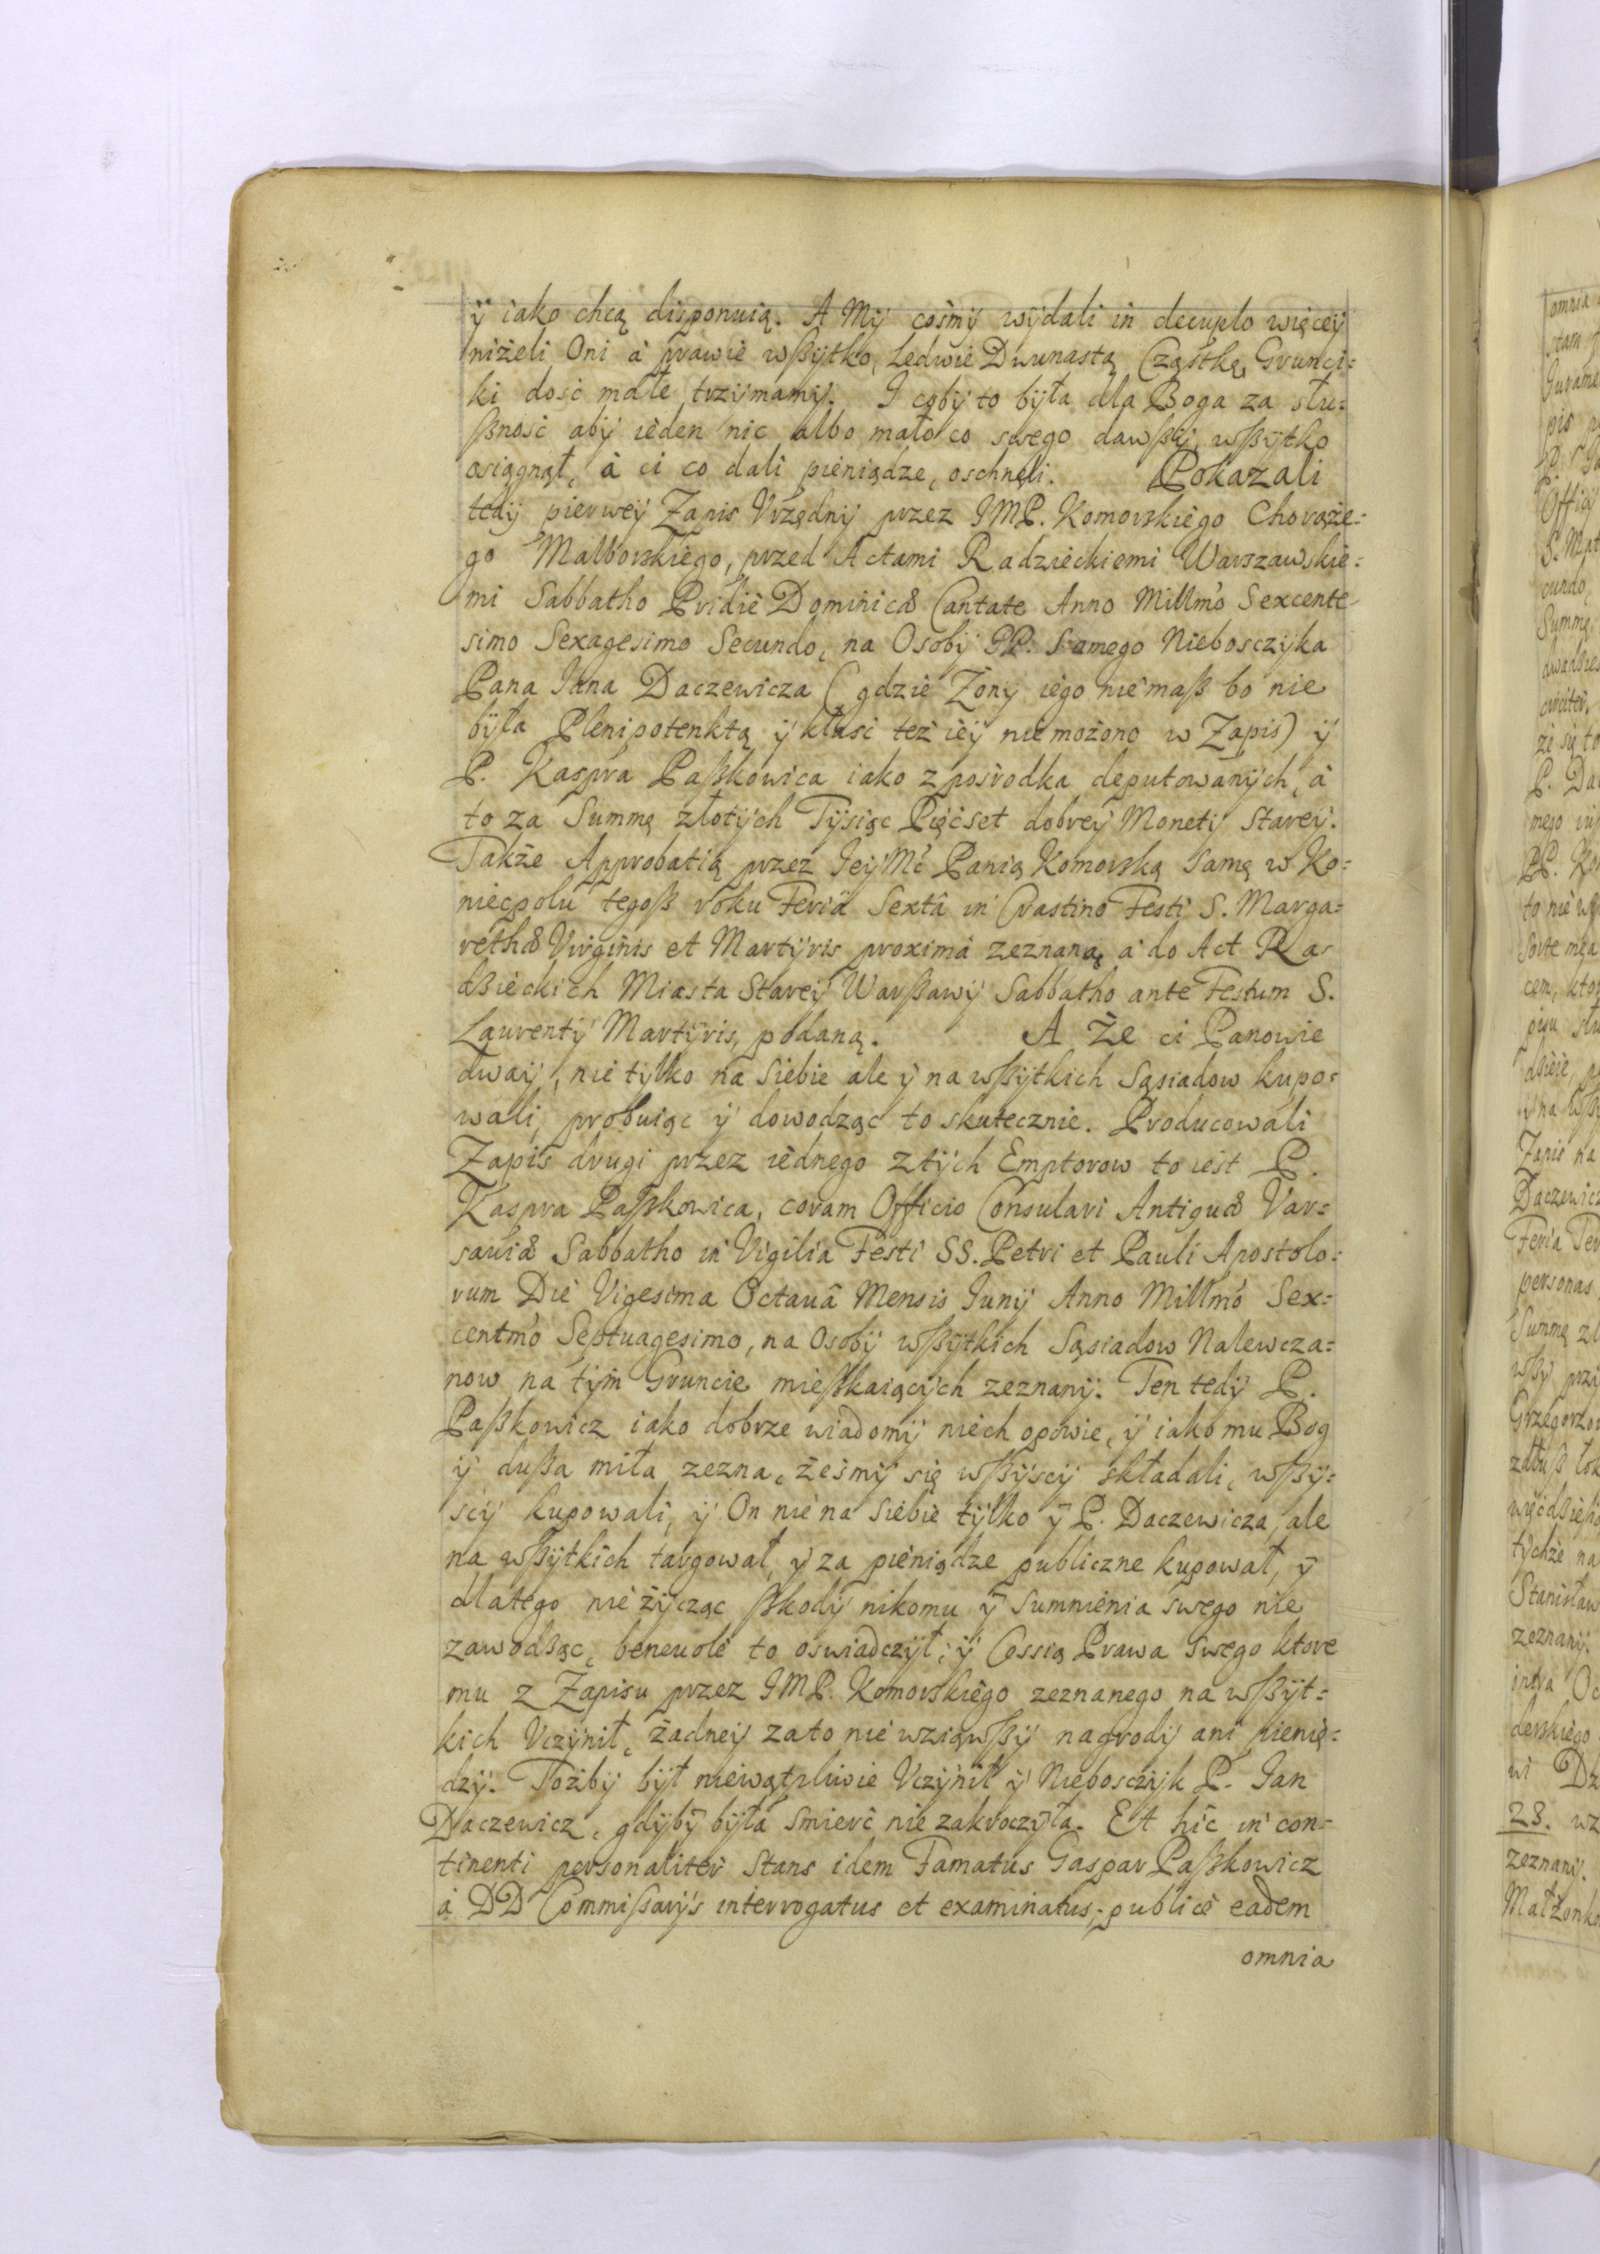 ÿ iako chcą disponuią. A Mÿ cośmÿ wÿdali in decuplo więceÿ
niżeli Oni à prawie wßÿtko, Ledwie Dwunastą Cząstkę Grunci=
ki dość małe trzÿmamÿ. I cobÿ to bÿła dla Boga za słu=
ßność abÿ ieden nic albo mało co swego dawßÿ, wßÿtko
osiągnął, à ci co dali pieniądze, oschnęli. Pokazali
tedÿ pierweÿ Zapis Vrzędnÿ przez IMP. Komorskiego Chorąże=
go Malborskiego, przed Actami Radzieckiemi Warszawskie=
mi Sabbatho Pridie Dominicæ Cantate Anno Millmo Sexcente=
simo Sexagesimo Secundo, na Osobÿ PP. Samego Nieboszczÿka
Pana Jana Daczewicza (gdzie Żonÿ iego niemaß bo nie
bÿła Plenipotenktą ÿ kłaść też ieÿ nie możono w Zapis) ÿ
P. Kaspra Paßkowica iako z pośrodka deputowanÿch, à
to za Summę złotÿch Tÿsiąc Pięćset dobreÿ Monetÿ stareÿ.
Także Approbatią przez IeÿMć Panią Komorską samę w Ko=
niecpolu tegoß roku Feriâ Sextâ in Crastino Festi S. Marga=
rethæ Virginis et Martÿris proximâ zeznaną à do Act Ra=
dzieckich Miasta Stareÿ Warßawÿ Sabbatho ante Festum S.
Laurentÿ Martÿris, podaną. A Że ci Panowie
dwaÿ, nie tÿlko na siebie ale ÿ na wßÿtkich Sąsiadow kupo=
wali, probuiąc ÿ dowodząc to skutecznie. Producowali
Zapis drugi przez iednego z tÿch Emptorow to iest P.
Kaspra Paßkowica, coram Officio Consulari Antiquæ Var=
saviæ Sabbatho in Vigilia Festi SS. Petri et Pauli Apostolo=
rum Die Vigesima Octauâ Mensis Iunÿ Anno Millmo Sex=
centmo Septuagesimo, na Osobÿ wßÿtkich Sąsiadow Nalewcza=
now na tÿm Gruncie mießkaiącÿch zeznanÿ. Ten tedÿ P.
Paßkowicz iako dobrze wiadomÿ niech opowie, ÿ iako mu Bog
ÿ dußa miła zezna, żeśmÿ się wßÿscÿ składali, wßÿ=
scÿ kupowali, ÿ On nie na siebie tÿlko ÿ P. Daczewicza, ale
na wßÿtkich targował, ÿ za pieniądze publiczne kupował, ÿ
dlatego nie żÿcząc ßkodÿ nikomu ÿ Sumnienia swego nie
zawodząc, beneuole to oświadczÿł; ÿ Cessią Prawa swego ktore
mu z Zapisu przez IMP. Komorskiego zeznanego na wßÿt=
kich Vczÿnił, żadneÿ zato nie wziąwßÿ nagrodÿ ani pienię=
dzÿ. Tożbÿ bÿł niewątpliwie Vczÿnił ÿ Nieboszczÿk P. Jan
Daczewicz, gdÿbÿ bÿła śmierć nie zakroczÿła. Et hic in con=
tinenti personaliter stans idem Famatus Gaspar Paßkowicz
à DD Commißarÿs interrogatus et examinatus, publicè eadem
omnia